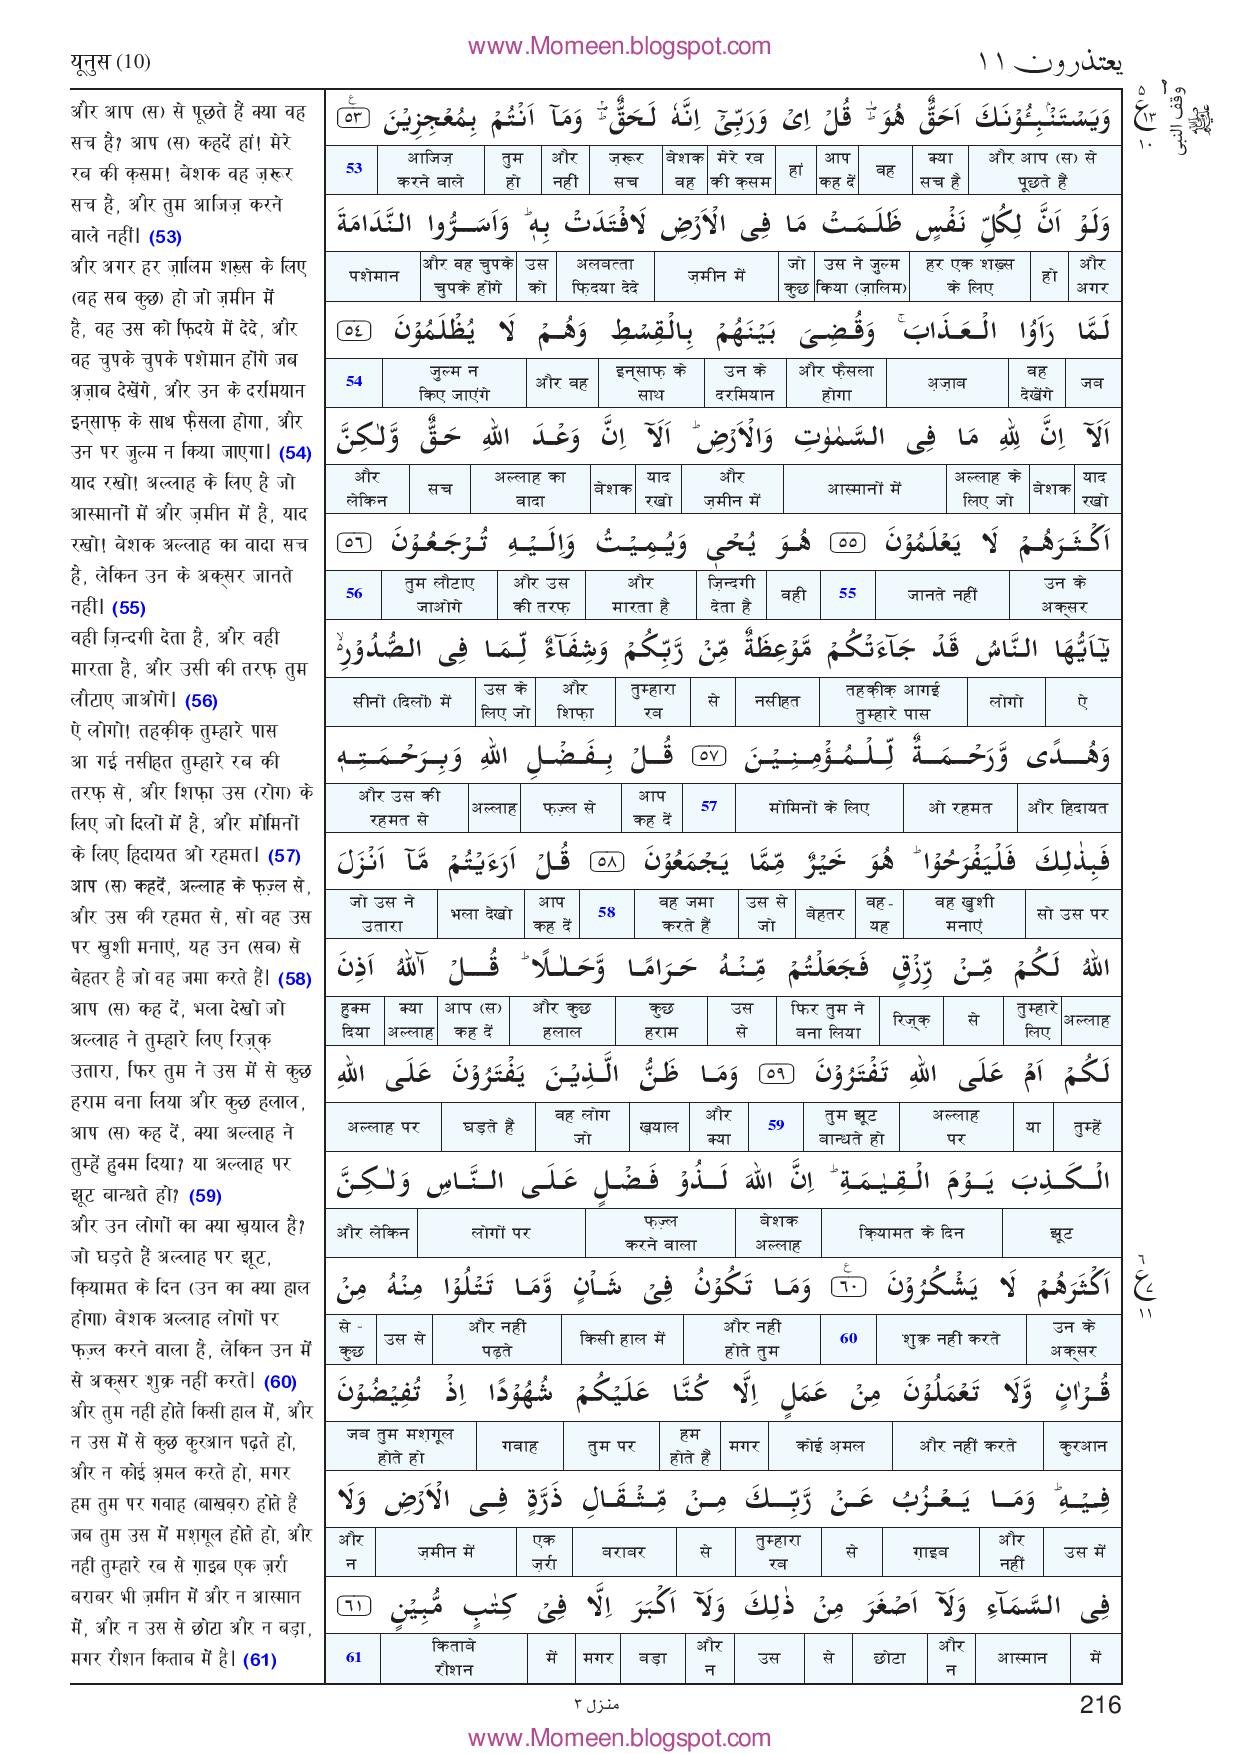 www.Momeen.blogspot.com
यूनुस (10)
یعتذرون ۱۱
और आप (स) से पूछते हैं क्या वह
सच है? आप (स) कहदें हां! मेरे
रब की क़सम! बेशक वह ज़रूर
सच है, और तुम आजिज़ करने
वाले नहीं। (53)
और अगर हर ज़ालिम शख़्स के लिए
(वह सब कुछ) हो जो ज़मीन में
है, वह उस को फ़िदये में देदे, और
वह चुपके चुपके पशेमान होंगे जब
अ़ज़ाब देखेंगे, और उन के दरमियान
इन्साफ़ के साथ फ़ैसला होगा, और
उन पर जुल्म न किया जाएगा। (54)
याद रखो! अल्लाह के लिए है जो
आस्मानों में और ज़मीन में है, याद
रखो! बेशक अल्लाह का वादा सच
है, लेकिन उन के अक्सर जानते
नहीं। (55)
वही ज़िन्दगी देता है, और वही
मारता है, और उसी की तरफ़ तुम
लौटाए जाओगे। (56)
ऐ लोगो! तहक़ीक़ तुम्हारे पास
आ गई नसीहत तुम्हारे रब की
तरफ़ से, और शिफ़ा उस (रोग) के
लिए जो दिलों में है, और मोमिनों
के लिए हिदायत ओ रहमत। (57)
आप (स) कहदें, अल्लाह के फ़ज़्ल से,
और उस की रहमत से, सो वह उस
पर ख़ुशी मनाएं, यह उन (सब) से
बेहतर है जो वह जमा करते हैं। (58)
आप (स) कह दें, भला देखो जो
अल्लाह ने तुम्हारे लिए रिज़्क़
उतारा, फिर तुम ने उस में से कुछ
हराम बना लिया और कुछ हलाल,
आप (स) कह दें, क्या अल्लाह ने
तुम्हें हुक्म दिया? या अल्लाह पर
झूट बान्धते हो? (59)
और उन लोगों का क्या ख़याल है?
जो घड़ते हैं अल्लाह पर झूट,
क़ियामत के दिन (उन का क्या हाल
होगा) बेशक अल्लाह लोगों पर
फ़ज़्ल करने वाला है, लेकिन उन में
से अक्सर शुक्र नहीं करते। (60)
और तुम नहीं होते किसी हाल में, और
न उस में से कुछ कुरआन पढ़ते हो,
और न कोई अ़मल करते हो, मगर
हम तुम पर गवाह (बाख़बर) होते हैं
जब तुम उस में मशग़ूल होते हो, और
नहीं तुम्हारे रब से ग़ाइब एक ज़र्रा
बराबर भी ज़मीन में और न आस्मान
में, और न उस से छोटा और न बड़ा,
मगर रौशन किताब में है। (61)
وَيَسْتَنْۢبِـُٔوْنَكَ اَحَقٌّ هُوَ ؔؕ قُلْ اِيْ وَرَبِّيْٓ اِنَّهٗ لَحَقٌّ ؔؕ وَمَآ اَنْتُمْ بِمُعْجِزِيْنَ ۵۳
और आप (स) से पूछते हैं | क्या सच है | वह | आप कह दें | हां | मेरे रब की क़सम | बेशक वह | ज़रूर सच | और नहीं | तुम हो | आजिज़ करने वाले | 53
وَلَوْ اَنَّ لِكُلِّ نَفْسٍ ظَلَمَتْ مَا فِي الْاَرْضِ لَافْتَدَتْ بِهٖ ؕ وَاَسَرُّوا النَّدَامَةَ
और अगर | हो | हर एक शख़्स के लिए | उस ने जुल्म किया (ज़ालिम) | जो कुछ | ज़मीन में | अलबत्ता फ़िदया देदे | उस को | और वह चुपके चुपके होंगे | पशेमान
لَمَّا رَاَوُا الْعَذَابَ ۚ وَقُضِيَ بَيْنَهُمْ بِالْقِسْطِ وَهُمْ لَا يُظْلَمُوْنَ ۵۴
जब | वह देखेंगे | अ़ज़ाब | और फ़ैसला होगा | उन के दरमियान | इन्साफ़ के साथ | और वह | जुल्म न किए जाएंगे | 54
اَلَآ اِنَّ لِلّٰهِ مَا فِي السَّمٰوٰتِ وَالْاَرْضِ ؕ اَلَآ اِنَّ وَعْدَ اللّٰهِ حَقٌّ وَّلٰكِنَّ
याद रखो | बेशक | अल्लाह के लिए जो | आस्मानों में | और ज़मीन में | याद रखो | बेशक | अल्लाह का वादा | सच | और लेकिन
اَكْثَرَهُمْ لَا يَعْلَمُوْنَ ۵۵ هُوَ يُحْيٖ وَيُمِيْتُ وَاِلَيْهِ تُرْجَعُوْنَ ۵۶
उन के अक्सर | जानते नहीं | 55 | वही | ज़िन्दगी देता है | और मारता है | और उस की तरफ़ | तुम लौटाए जाओगे | 56
يٰٓاَيُّهَا النَّاسُ قَدْ جَآءَتْكُمْ مَّوْعِظَةٌ مِّنْ رَّبِّكُمْ وَشِفَآءٌ لِّمَا فِي الصُّدُوْرِ ۙ
ऐ | लोगो | तहक़ीक़ आगई तुम्हारे पास | नसीहत | से | तुम्हारा रब | और शिफ़ा | उस के लिए जो | सीनों (दिलों) में
وَهُدًى وَّرَحْمَةٌ لِّلْمُؤْمِنِيْنَ ۵۷ قُلْ بِفَضْلِ اللّٰهِ وَبِرَحْمَتِهٖ
और हिदायत | ओ रहमत | मोमिनों के लिए | 57 | आप कह दें | फ़ज़्ल से | अल्लाह | और उस की रहमत से
فَبِذٰلِكَ فَلْيَفْرَحُوْا ؕ هُوَ خَيْرٌ مِّمَّا يَجْمَعُوْنَ ۵۸ قُلْ اَرَءَيْتُمْ مَّآ اَنْزَلَ
सो उस पर | वह ख़ुशी मनाएं | वह - यह | बेहतर | उस से जो | वह जमा करते हैं | 58 | आप कह दें | भला देखो | जो उस ने उतारा
اللّٰهُ لَكُمْ مِّنْ رِّزْقٍ فَجَعَلْتُمْ مِّنْهُ حَرَامًا وَّحَلٰلًا ؕ قُلْ آٰللّٰهُ اَذِنَ
अल्लाह | तुम्हारे लिए | से | रिज़्क़ | फिर तुम ने बना लिया | उस से | कुछ हराम | और कुछ हलाल | आप (स) कह दें | क्या अल्लाह | हुक्म दिया
لَكُمْ اَمْ عَلَى اللّٰهِ تَفْتَرُوْنَ ۵۹ وَمَا ظَنُّ الَّذِيْنَ يَفْتَرُوْنَ عَلَى اللّٰهِ
तुम्हें | या | अल्लाह पर | तुम झूट बान्धते हो | 59 | और क्या | ख़याल | वह लोग जो | घड़ते हैं | अल्लाह पर
الْكَذِبَ يَوْمَ الْقِيٰمَةِ ؕ اِنَّ اللّٰهَ لَذُوْ فَضْلٍ عَلَى النَّاسِ وَلٰكِنَّ
झूट | क़ियामत के दिन | बेशक अल्लाह | फ़ज़्ल करने वाला | लोगों पर | और लेकिन
اَكْثَرَهُمْ لَا يَشْكُرُوْنَ ۶۰ وَمَا تَكُوْنُ فِيْ شَاْنٍ وَّمَا تَتْلُوْا مِنْهُ مِنْ
उन के अक्सर | शुक्र नहीं करते | 60 | और नहीं होते तुम | किसी हाल में | और नहीं पढ़ते | उस से | से - कुछ
قُرْاٰنٍ وَّلَا تَعْمَلُوْنَ مِنْ عَمَلٍ اِلَّا كُنَّا عَلَيْكُمْ شُهُوْدًا اِذْ تُفِيْضُوْنَ
कुरआन | और नहीं करते | कोई अ़मल | मगर | हम होते हैं | तुम पर | गवाह | जब तुम मशग़ूल होते हो
فِيْهِ ؕ وَمَا يَعْزُبُ عَنْ رَّبِّكَ مِنْ مِّثْقَالِ ذَرَّةٍ فِي الْاَرْضِ وَلَا
उस में | और नहीं | ग़ाइब | से | तुम्हारा रब | से | बराबर | एक ज़र्रा | ज़मीन में | और न
فِي السَّمَآءِ وَلَآ اَصْغَرَ مِنْ ذٰلِكَ وَلَآ اَكْبَرَ اِلَّا فِيْ كِتٰبٍ مُّبِيْنٍ ۶۱
में | आस्मान | और न | छोटा | से | उस | और न | बड़ा | मगर | में | किताबे रौशन | 61
۵
ع
۱۳
۱۰
وقف النبی ﷺ
۶
ع
۷
۱۱
منزل ۳
216
www.Momeen.blogspot.com